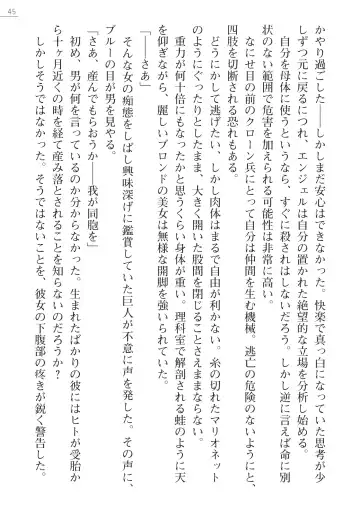 45
かやり過ごした――しかしまだ安心はできなかった。快楽で真っ白になっていた思考が少
しずつ元に戻るにつれ、エンジェルは自分の置かれた絶望的な立場を分析し始める。
自分を母体に使うというなら、すぐに殺されはしないだろう。しかし逆に言えば命に別
状のない範囲で危害を加えられる可能性は非常に高い。
なにせ目の前のクローン兵にとって自分は仲間を生む機械。逃亡の危険のないようにと、
四肢を切断される恐れもある。
どうにかして逃げたい、しかし肉体はまるで自由が利かない。糸の切れたマリオネット
のようにぐったりとしたまま、大きく開いた股間を閉じることさえままならない。
重力が何十倍にもなったかと思うくらい身体が重い。理科室で解剖される蛙のように天
を仰ぎながら、麗しいブロンドの美女は無様な開脚を強いられていた。
「――さあ」
そんな女の痴態をしばし興味深げに鑑賞していた巨人が不意に声を発した。その声に、
ブルーの目が男を見やる。
「さあ、産んでもらおうか――我が同胞を」
初め、男が何を言っているのか分からなかった。生まれたばかりの彼にはヒトが受胎か
ら十ヶ月近くの時を経て産み落とされることを知らないのだろうか？
しかしそうではなかった。そうではないことを、彼女の下腹部の疼きが鋭く警告した。